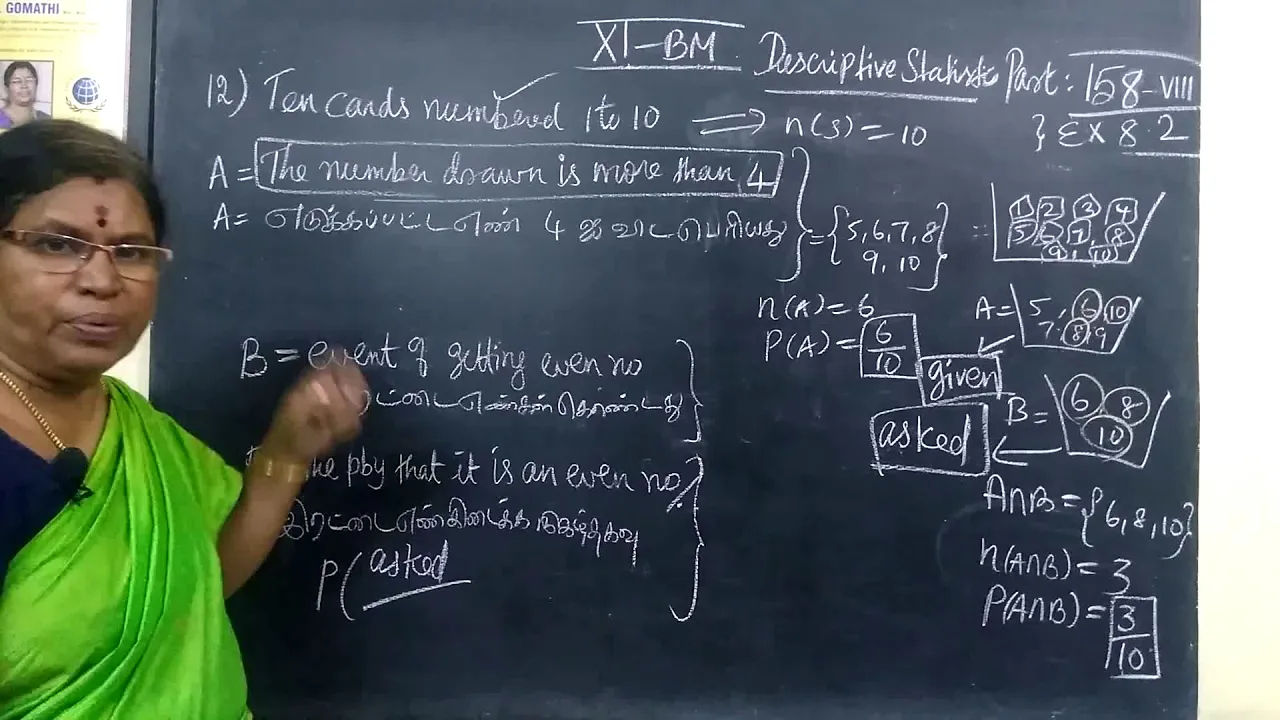 GOMATHI
XI-BM
Descriptive Statistic Part: 158-VIII
} EX 8.2
12) Ten cards numbered 1 to 10 ⟹ n(s) = 10
A = The number drawn is more than 4
A = எடுக்கப்பட்ட எண் 4 ஐ விட பெரியது
} = {5, 6, 7, 8
9, 10}
= 1 2 3 4
5 6 7 8
9, 10
n(A) = 6
P(A) = 6/10
A = 5, 6, 10
7, 8, 9
given
B = event of getting even no
எண்கள் கொண்டது
B = 6 8
10
asked
pby that it is an even no
இரட்டை எண் கிடைக்க நிகழ்தகவு
P(asked
A∩B = {6, 8, 10}
n(A∩B) = 3
P(A∩B) = 3/10